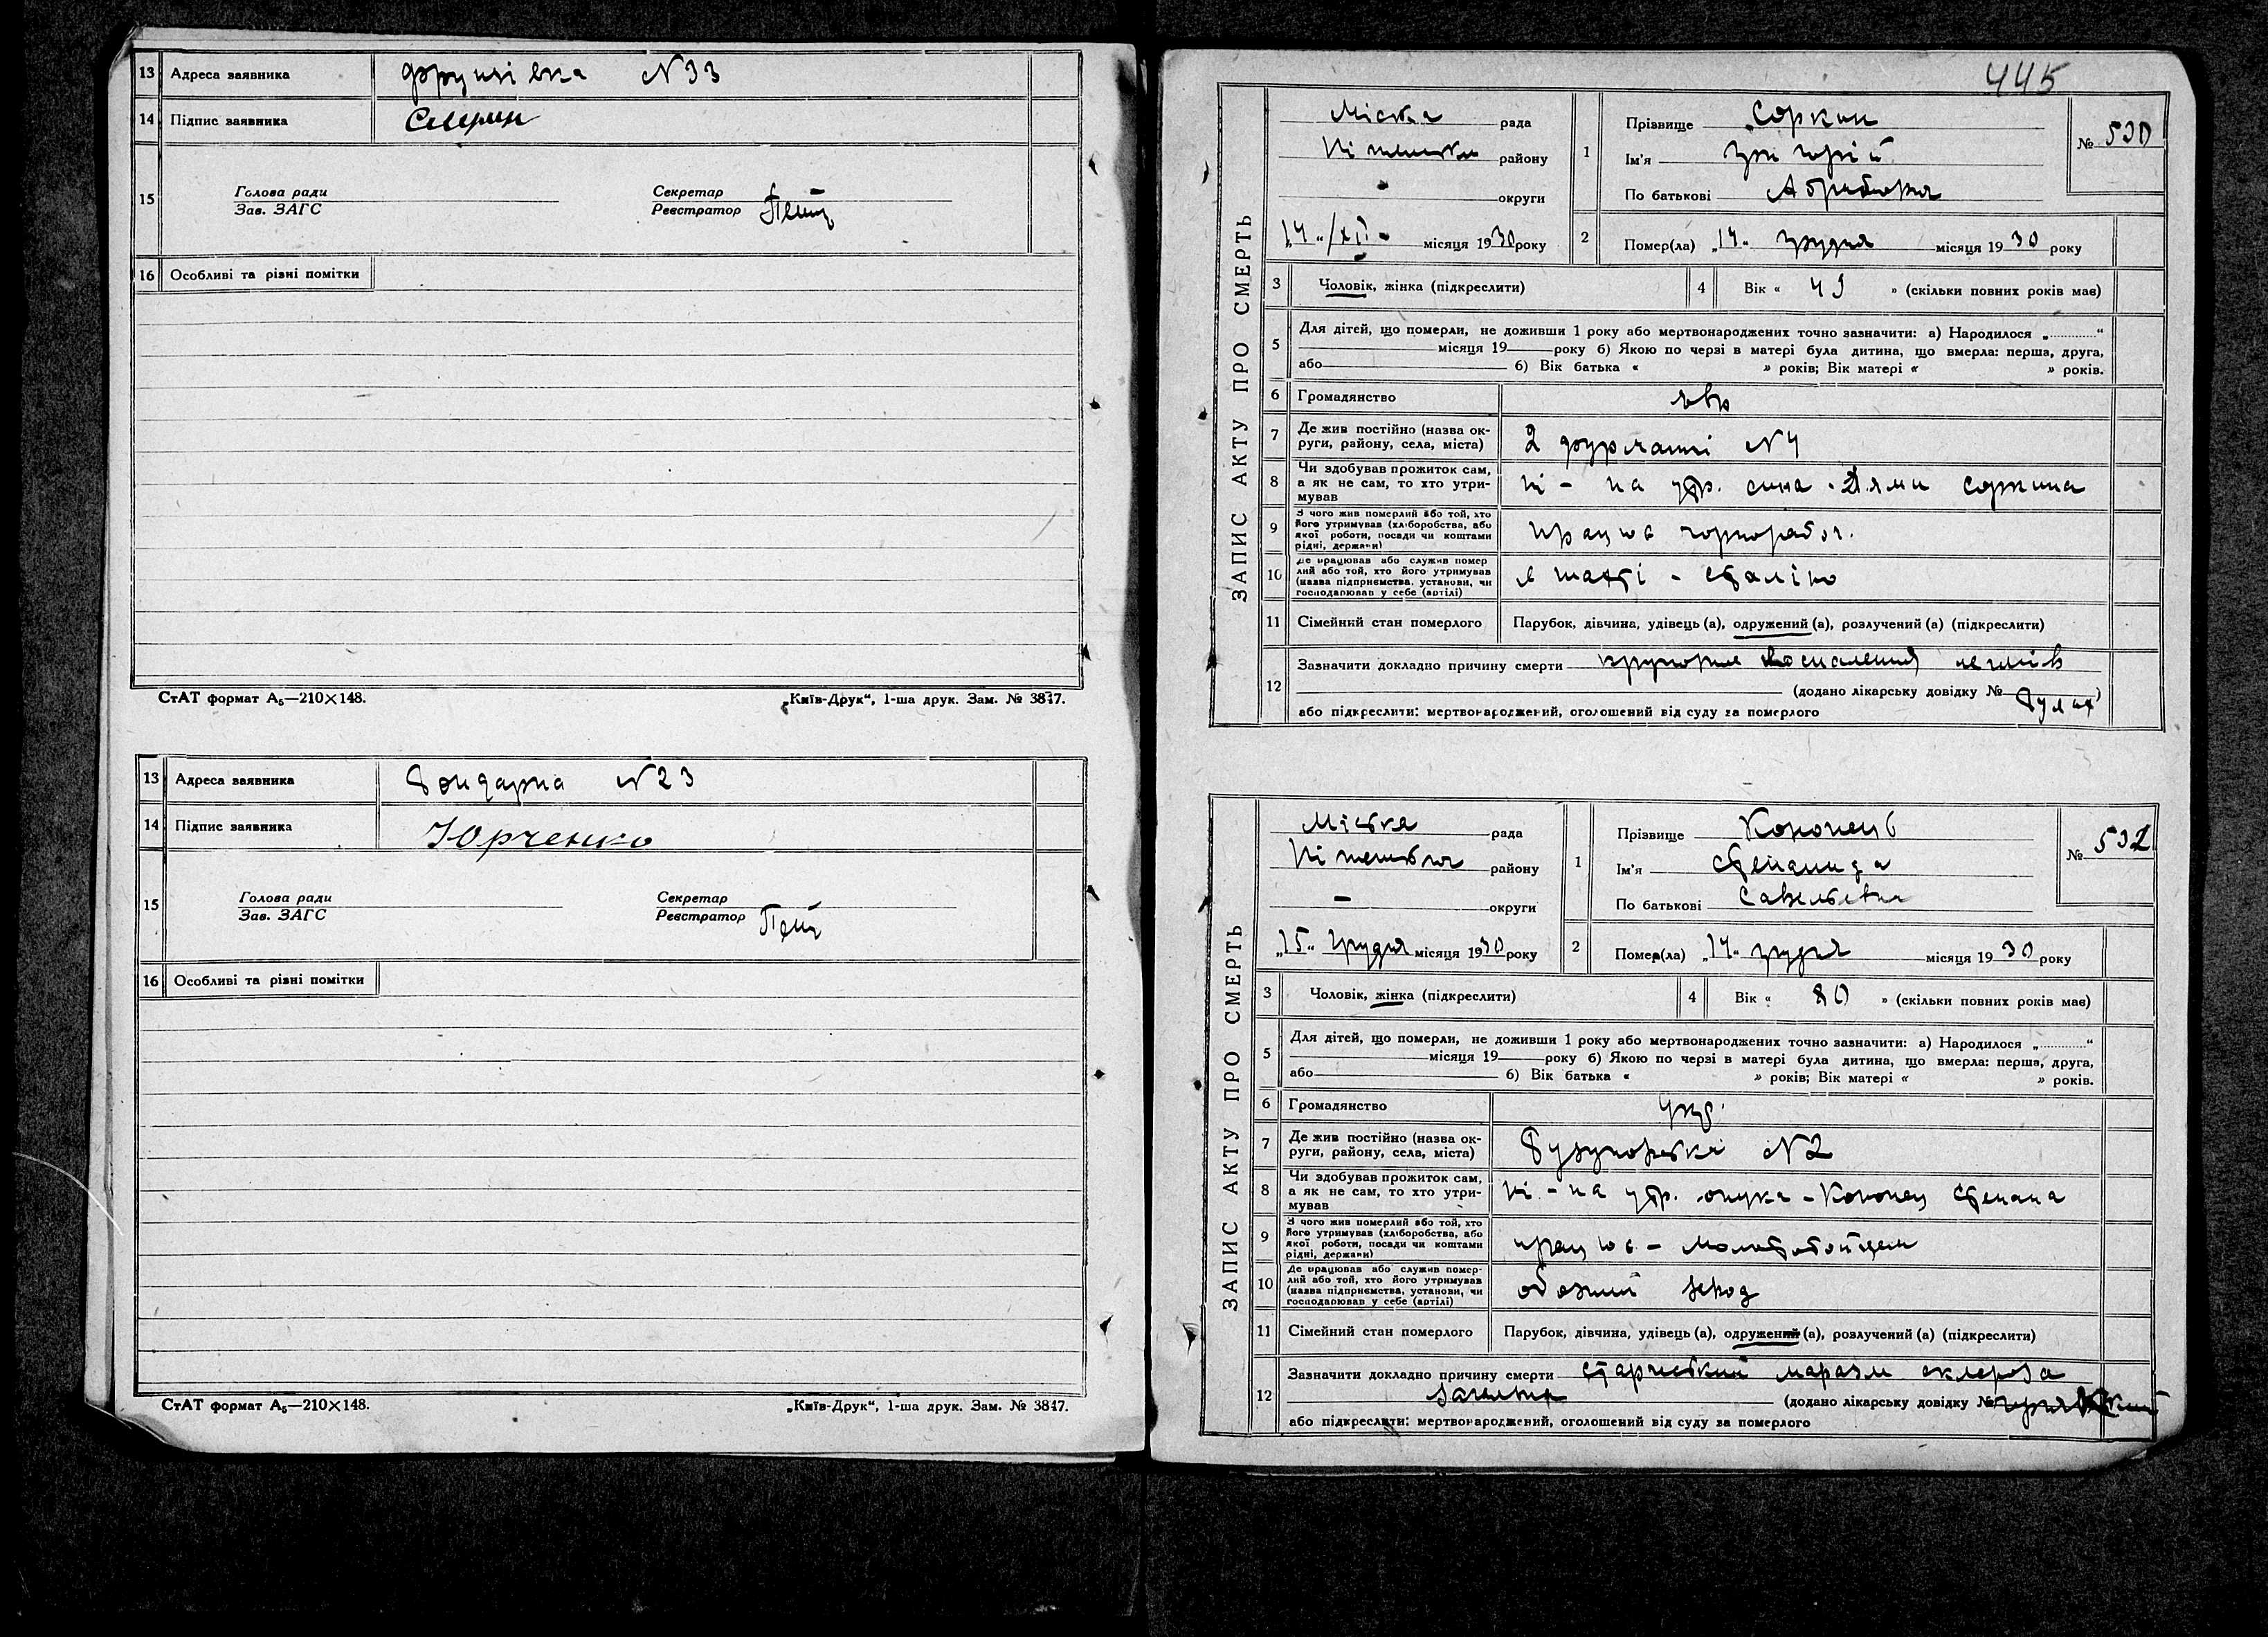 13 Адреса заявника Фрунзівка N 33
14 Підпис заявника
15 Голова ради Зав. ЗАГС Секретар Реєстратор
16 Особливі та різні помітки
СтАТ формат А₅—210×148. „Київ-Друк“, 1-ша друк. Зам. № 3847.
13 Адреса заявника Бондарна N 23
14 Підпис заявника Юрченко
15 Голова ради Зав. ЗАГС Секретар Реєстратор
16 Особливі та різні помітки
СтАТ формат А₅—210×148. „Київ-Друк“, 1-ша друк. Зам. № 3847.
445
ЗАПИС АКТУ ПРО СМЕРТЬ
Міська рада
району
- округи
„14“ /XII- місяця 1930 року
1 Прізвище Соркин
Ім'я Григорій
По батькові
№ 530
2 Помер(ла) „14“ грудня місяця 1930 року
3 Чоловік, жінка (підкреслити)
4 Вік « 49 » (скільки повних років має)
5 Для дітей, що померли, не доживши 1 року або мертвонароджених точно зазначити: а) Народилося „............“
місяця 19 року б) Якою по черзі в матері була дитина, що вмерла: перша, друга,
або б) Вік батька « » років; Вік матері « » років.
6 Громадянство євр
7 Де жив постійно (назва округи, району, села, міста) 2 фурманні N 4
8 Чи здобував прожиток сам, а як не сам, то хто утримував ні - на утр. сина - Соркина
9 З чого жив померлий або той, хто його утримував (хліборобства, або якої роботи, посади чи коштами рідні, держави) працює чорнороб
10 Де працював або служив помер лий або той, хто його утримував (назва підприємства, установи, чи господарював у себе (артілі) в шахті - Сталіно
11 Сімейний стан померлого Парубок, дівчина, удівець (а), одружений (а), розлучений (а) (підкреслити)
12 Зазначити докладно причину смерти крупозне воспаления легенів
(додано лікарську довідку № )
або підкреслити: мертвонароджений, оголошений від суду за померлого
ЗАПИС АКТУ ПРО СМЕРТЬ
Міська рада
району
- округи
„15“ грудня місяця 1930 року
1 Прізвище Кононець
Ім'я Степанида
По батькові Савельевна
№ 532
2 Помер(ла) „14“ грудня місяця 1930 року
3 Чоловік, жінка (підкреслити)
4 Вік « 80 » (скільки повних років має)
5 Для дітей, що померли, не доживши 1 року або мертвонароджених точно зазначити: а) Народилося „............“
місяця 19 року б) Якою по черзі в матері була дитина, що вмерла: перша, друга,
або б) Вік батька « » років; Вік матері « » років.
6 Громадянство укр.
7 Де жив постійно (назва округи, району, села, міста) N 2
8 Чи здобував прожиток сам, а як не сам, то хто утримував ні - на утр. онука - Кононец Степана
9 З чого жив померлий або той, хто його утримував (хліборобства, або якої роботи, посади чи коштами рідні, держави) працює - молотобойцем
10 Де працював або служив померлий або той, хто його утримував (назва підприємства, установи, чи господарював у себе (артілі) обозний завод
11 Сімейний стан померлого Парубок, дівчина, удівець (а), одружений (а), розлучений (а) (підкреслити)
12 Зазначити докладно причину смерти старческий маразм склероза
(додано лікарську довідку №
або підкреслити: мертвонароджений, оголошений від суду за померлого